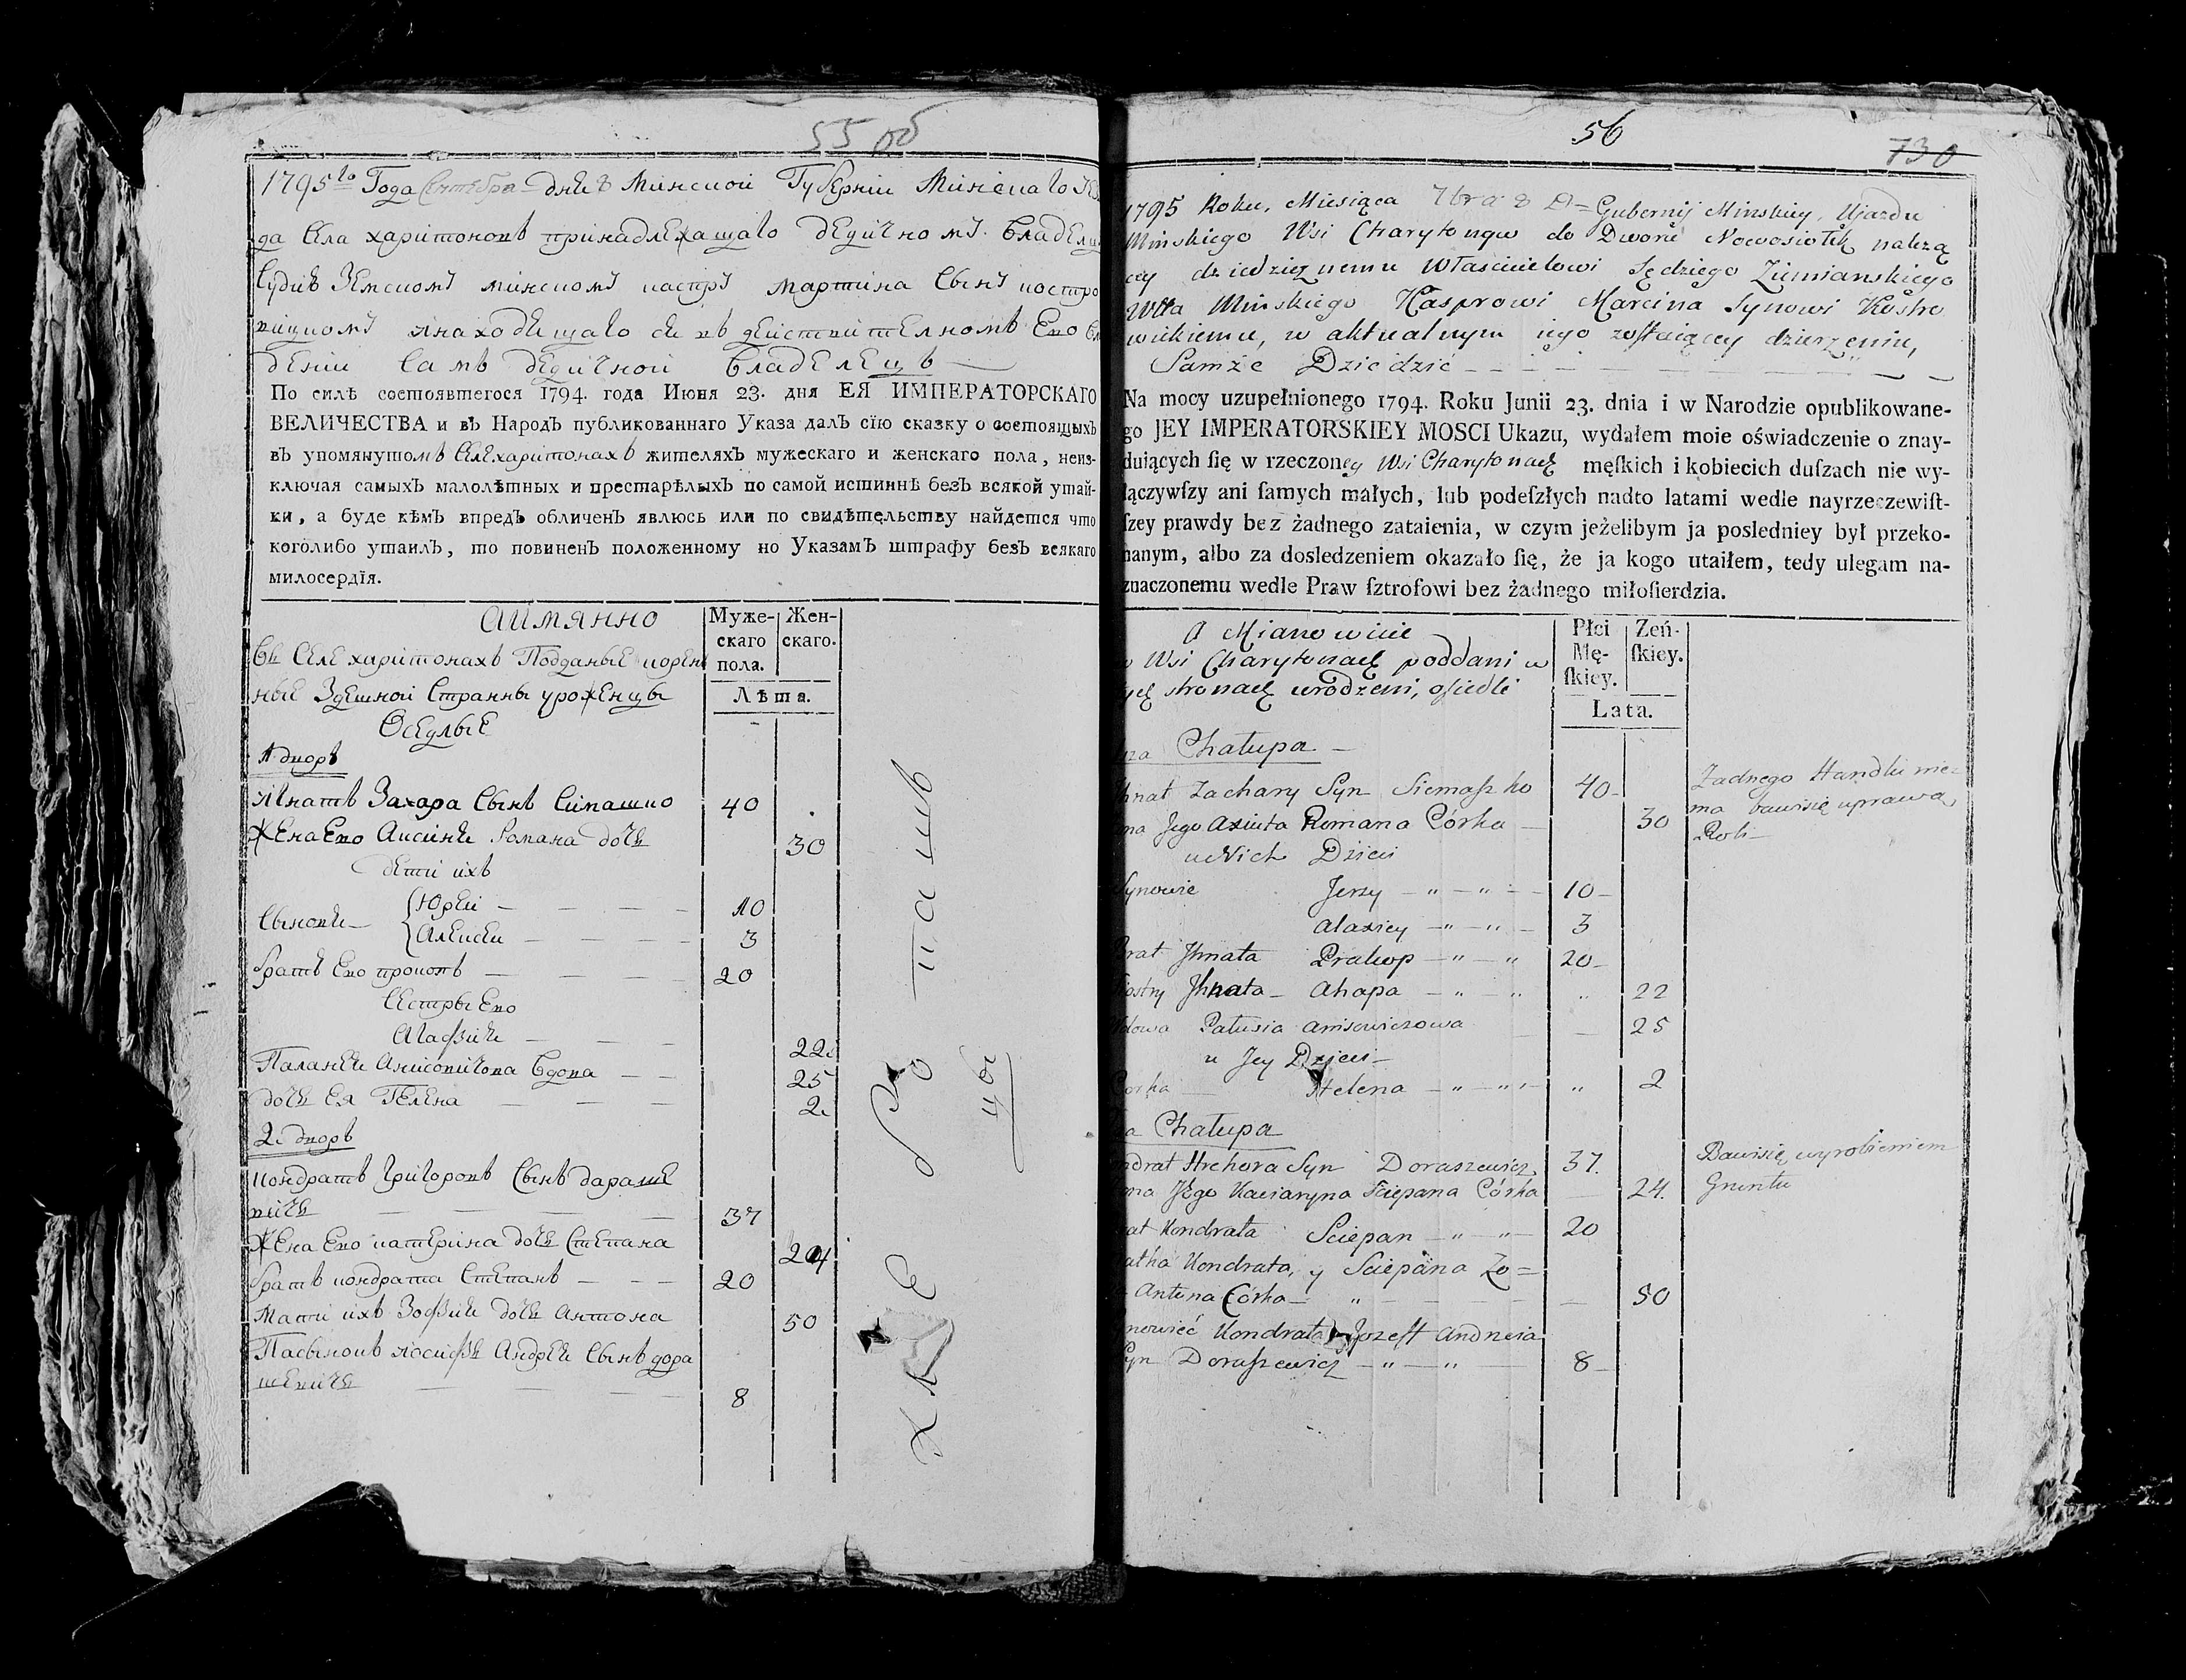 55 об
1795го Года Сентября дня 8 Минской Губернии Минскаго
да Села харитоновъ принадлежащаго дедичному владелцу
Судие Земскому минскому каспру мартина Сыну костро
вицкому ѝнаходещаго се въ действителномъ Ево
дении Самъ дедичной владелецъ
По силѣ состоявшегося 1794. года Июня 23. дня ЕЯ ИМПЕРАТОРСКАГО
ВЕЛИЧЕСТВА и въ Народъ публикованнаго Указа далъ сїю сказку о состоящыхъ
въ упомянутомъ Селе харитонахъ жителяхъ мужескаго и женскаго пола, неиз-
ключая самыхъ малолѣтныхъ и престарѣлыхъ по самой истиннѣ безъ всякой утай-
ки, а буде кѣмъ впредъ обличенъ явлюсь или по свидѣтельству найдется что
коголибо утаилъ, то повиненъ положенному по Указамъ штрафу безъ всякаго
милосердїя.
АИМЯННО
Муже-скаго пола. Жен-скаго.
Лѣта.
Въ Селе харитонахъ Подданые корен
ные Здешной Странны уроженцы
Оседлые
1 дворъ
Игнатъ Захара Сынъ Симашко 40
Жена Ево Аксиня Романа дочь 30
дети ихъ
Сыновя Юрей 10
Алексеи 3
братъ Ево прокопъ 20
Сестры Ево
Агафия 22
Паланея Анисовичова вдова 25
дочь Ея Гелена 2
2 дворъ
кондратъ Григоровъ Сынъ дараше
вичь 37
Жена Ево катерина дочь Степана 24
братъ кондрата Степанъ 20
Мати ихъ Зофия дочь Антона 50
Пасынокъ иосифъ Андрея Сынъ дора
шевичь 8
56
730
1795 Roku, Miesiąca 7bra 8 D Gubernij Minskiey, Ujazdu
Minskiego Wsi Charytonow do Dworu Nowosiołek należą
cey dziedzicznemu Właścicielowi Sędziego Ziemianskiego
Wttа Minskiego Kasprowi Marcina Synowi Kostro
wickiemu, w aktualnym iego zostaiącey dzierzeniu,
Samże Dziedzić
Na mocy uzupełnionego 1794. Roku Junii 23. dnia i w Narodzie opublikowane-
go JEY IMPERATORSKIEY MOSCI Ukazu, wydałem moie oświadczenie o znay-
duiących ſię w rzeczoney Wsi Charytonach męſkich i kobiecich duſzach nie wy-
łączywſzy ani ſamych małych, lub podeſzłych nadto latami wedle nayrzeczewiſt-
ſzey prawdy bez żadnego zataienia, w czym jeżelibym ja posledniey był przeko-
nanym, albo za dosledzeniem okazało ſię, że ja kogo utaiłem, tedy ulegam na-
znaczonemu wedle Praw ſztrofowi bez żadnego miłoſierdzia.
A Mianowicie
Płci Mę-ſkiey. Zeń-ſkiey.
Lata.
Wsi Charytonach poddani w
tych stronach urodzeni, osiedli
Chałupa
hnat Zachary Syn Siemaszko 40 Żadnego Handlu nie
na Jego Axiuta Romana Córka 30 ma bawisię uprawą
u Nich Dzieci Roli
Synowie Jerzy 10
Alaxiey 3
Brat Jhnata Prakop 20
Siostry Jhnata Ahapa 22
Wdowa Pałusia Anisowiczowa 25
u Jey Dzieci
Corka Helena 2
Chałupa
ndrat Hrehora Syn Doraszewicz 37 Bawisię wyrobieniem
na Jego Kaciaryna Sciepana Córka 24 Gruntu
rat Kondrata Sciepan 20
atka Kondrata, y Sciepana Zo=
Antona Córka 50
Kondrata Jozeff Andreia
Syn Doraszewicz 8